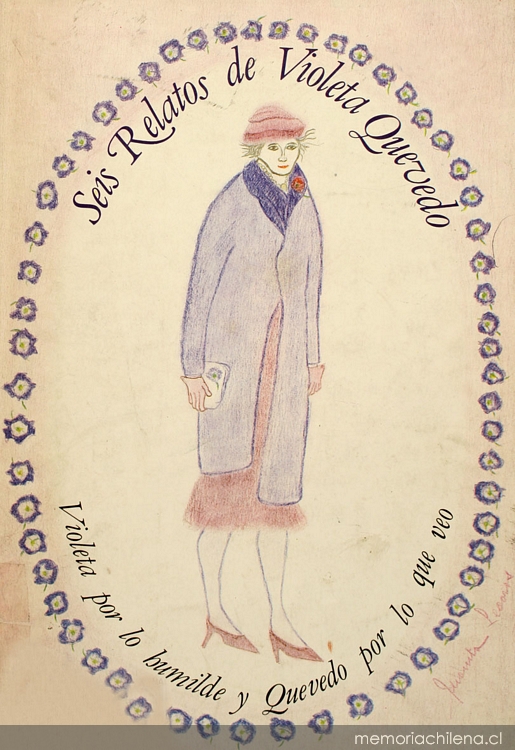 Seis Relatos de Violeta Quevedo
Violeta por lo humilde y Quevedo por lo que veo
memoriachilena.cl